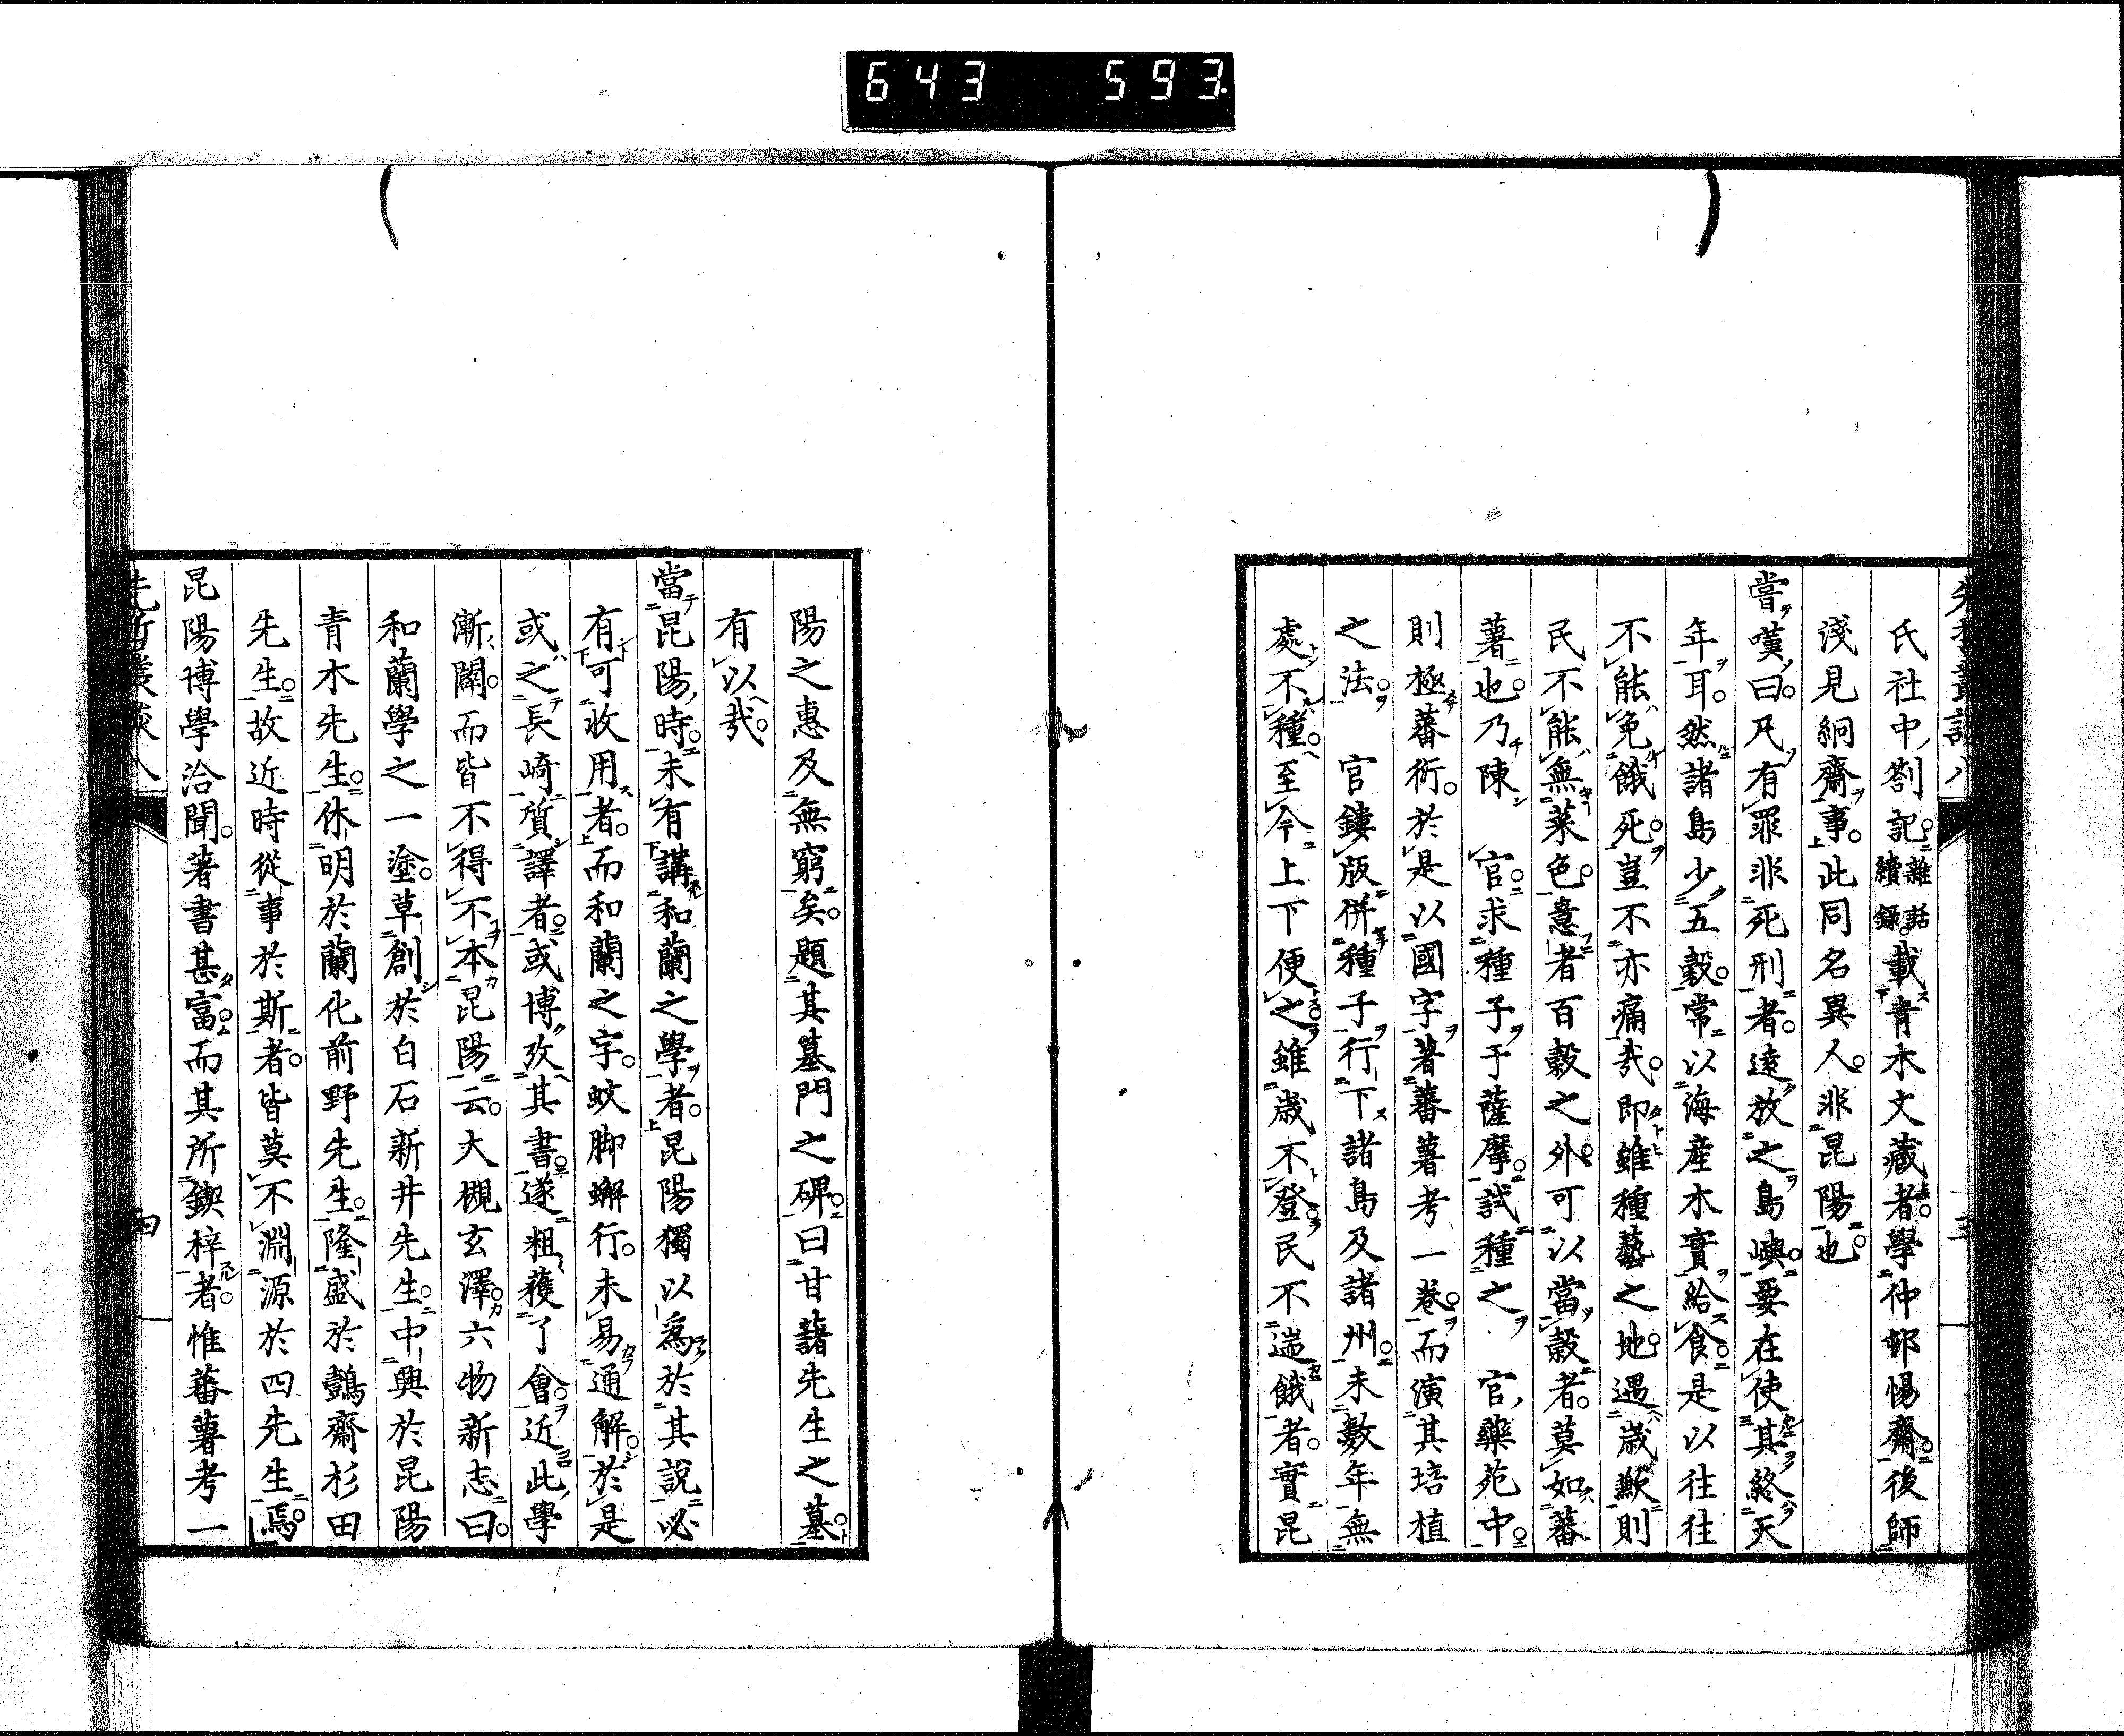 643 593
氏社中劄記雜話續錄載青木文藏者學仲邨惕齋後師
淺見絅齋事此同名異人非昆陽也
嘗嘆曰凡有罪非死刑者遠放之島嶼要在使其終天
年耳然諸島少五穀常以海產木實給食是以往往
不能免餓死豈不亦痛哉即雖種藝之地遇歲歉則
民不能無菜色意者百穀之外可以當穀者莫如蕃
薯也乃陳 官求種子于薩摩試種之 官藥苑中
則極蕃衍於是以國字著蕃薯考一卷而演其培植
之法 官鏤版併種子行下諸島及諸州未數年無
處不種至今上下便之雖歲不登民不遄餓者實昆
陽之惠及無窮矣題其墓門之碑曰甘藷先生之墓
有以哉
當昆陽時未有講和蘭之學者昆陽獨以為於其說必
有可收用者而和蘭之字蚊脚蠏行未易通解於是
或之長崎質譯者或博攷其書遂粗獲了會近此學
漸闢而皆不得不本昆陽云大槻玄澤六物新志曰
和蘭學之一塗草創於白石新井先生中興於昆陽
青木先生休明於蘭化前野先生隆盛於鷧齋杉田
先生故近時從事於斯者皆莫不淵源於四先生焉
昆陽博學洽聞著書甚富而其所鍥梓者惟蕃薯考一
先哲叢談八
四